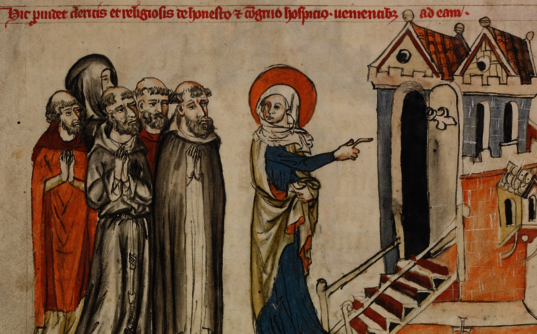 Hic providet clericis et religiosis de honesto ⁊ cōgruo hospicio · venientibꝫ ad eam ·